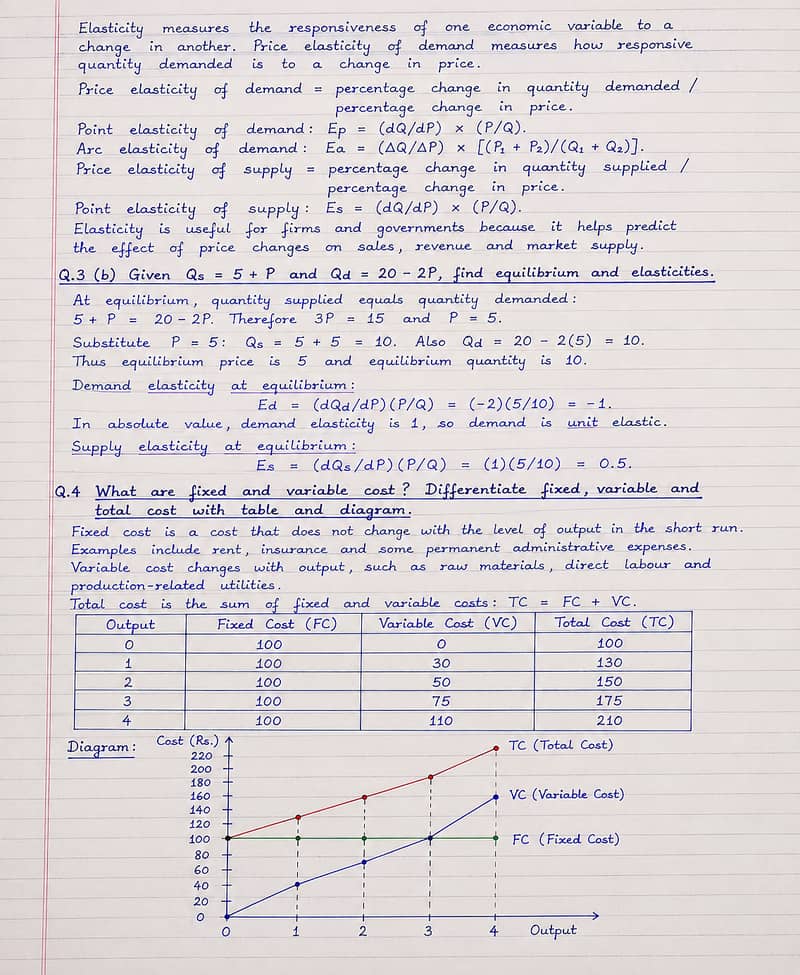 Elasticity measures the responsiveness of one economic variable to a
change in another. Price elasticity of demand measures how responsive
quantity demanded is to a change in price.
Price elasticity of demand = percentage change in quantity demanded /
percentage change in price.
Point elasticity of demand: Ep = (dQ/dP) × (P/Q).
Arc elasticity of demand: Ea = (ΔQ/ΔP) × [(P₁ + P₂)/(Q₁ + Q₂)].
Price elasticity of supply = percentage change in quantity supplied /
percentage change in price.
Point elasticity of supply: Es = (dQ/dP) × (P/Q).
Elasticity is useful for firms and governments because it helps predict
the effect of price changes on sales, revenue and market supply.
Q.3 (b) Given Qs = 5 + P and Qd = 20 - 2P, find equilibrium and elasticities.
At equilibrium, quantity supplied equals quantity demanded:
5 + P = 20 - 2P. Therefore 3P = 15 and P = 5.
Substitute P = 5: Qs = 5 + 5 = 10. Also Qd = 20 - 2(5) = 10.
Thus equilibrium price is 5 and equilibrium quantity is 10.
Demand elasticity at equilibrium:
Ed = (dQd/dP)(P/Q) = (-2)(5/10) = -1.
In absolute value, demand elasticity is 1, so demand is unit elastic.
Supply elasticity at equilibrium:
Es = (dQs/dP)(P/Q) = (1)(5/10) = 0.5.
Q.4 What are fixed and variable cost? Differentiate fixed, variable and
total cost with table and diagram.
Fixed cost is a cost that does not change with the level of output in the short run.
Examples include rent, insurance and some permanent administrative expenses.
Variable cost changes with output, such as raw materials, direct labour and
production-related utilities.
Total cost is the sum of fixed and variable costs: TC = FC + VC.
Output Fixed Cost (FC) Variable Cost (VC) Total Cost (TC)
0 100 0 100
1 100 30 130
2 100 50 150
3 100 75 175
4 100 110 210
Diagram: Cost (Rs.) TC (Total Cost)
220
200
180
160 VC (Variable Cost)
140
120
100 FC (Fixed Cost)
80
60
40
20
0
0 1 2 3 4 Output